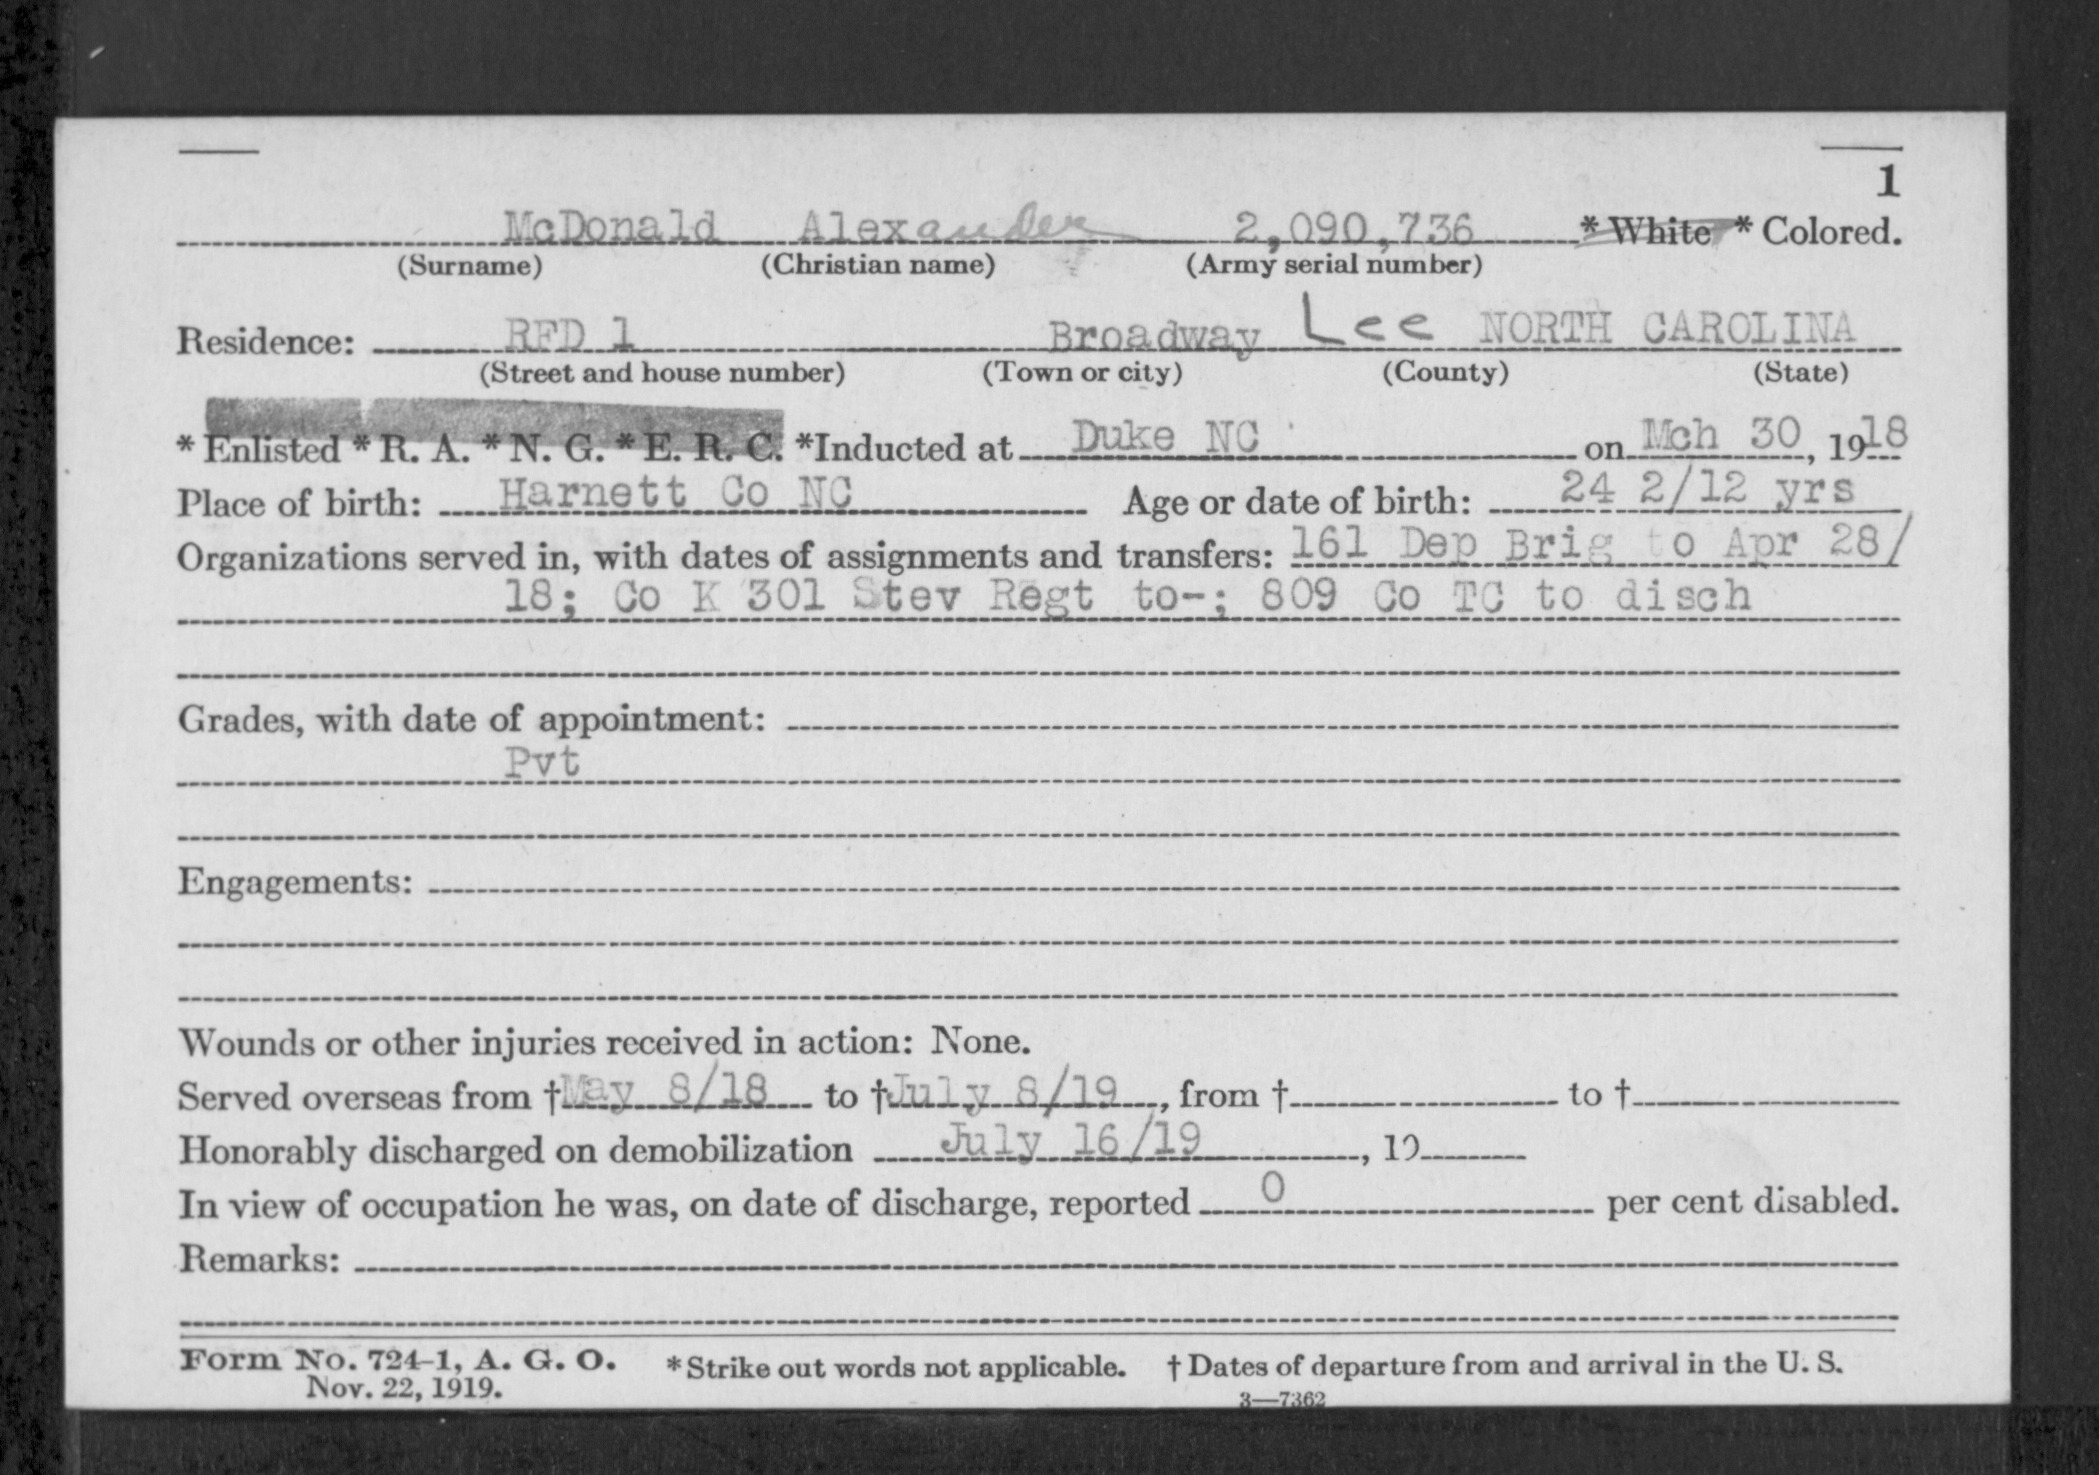 1
McDonald Alexander 2,090,736 * White * Colored.
(Surname) (Christian name) (Army serial number)
Residence: RFD 1 Broadway Lee NORTH CAROLINA
(Street and house number) (Town or city) (County) (State)
* Enlisted * R. A. * N. G. * E. R. C. *Inducted at Duke NC on Mch 30, 1918
Place of birth: Harnett Co NC Age or date of birth: 24 2/12 yrs
Organizations served in, with dates of assignments and transfers: 161 Dep Brig to Apr 28/
18; Co K 301 Stev Regt to-; 809 Co TC to disch
Grades, with date of appointment:
Pvt
Engagements:
Wounds or other injuries received in action: None.
Served overseas from †May 8/18 to †July 8/19, from † to †
Honorably discharged on demobilization July 16/19, 19
In view of occupation he was, on date of discharge, reported 0 per cent disabled.
Remarks:
Form No. 724-1, A. G. O. * Strike out words not applicable. † Dates of departure from and arrival in the U. S.
Nov. 22, 1919. 3—7362